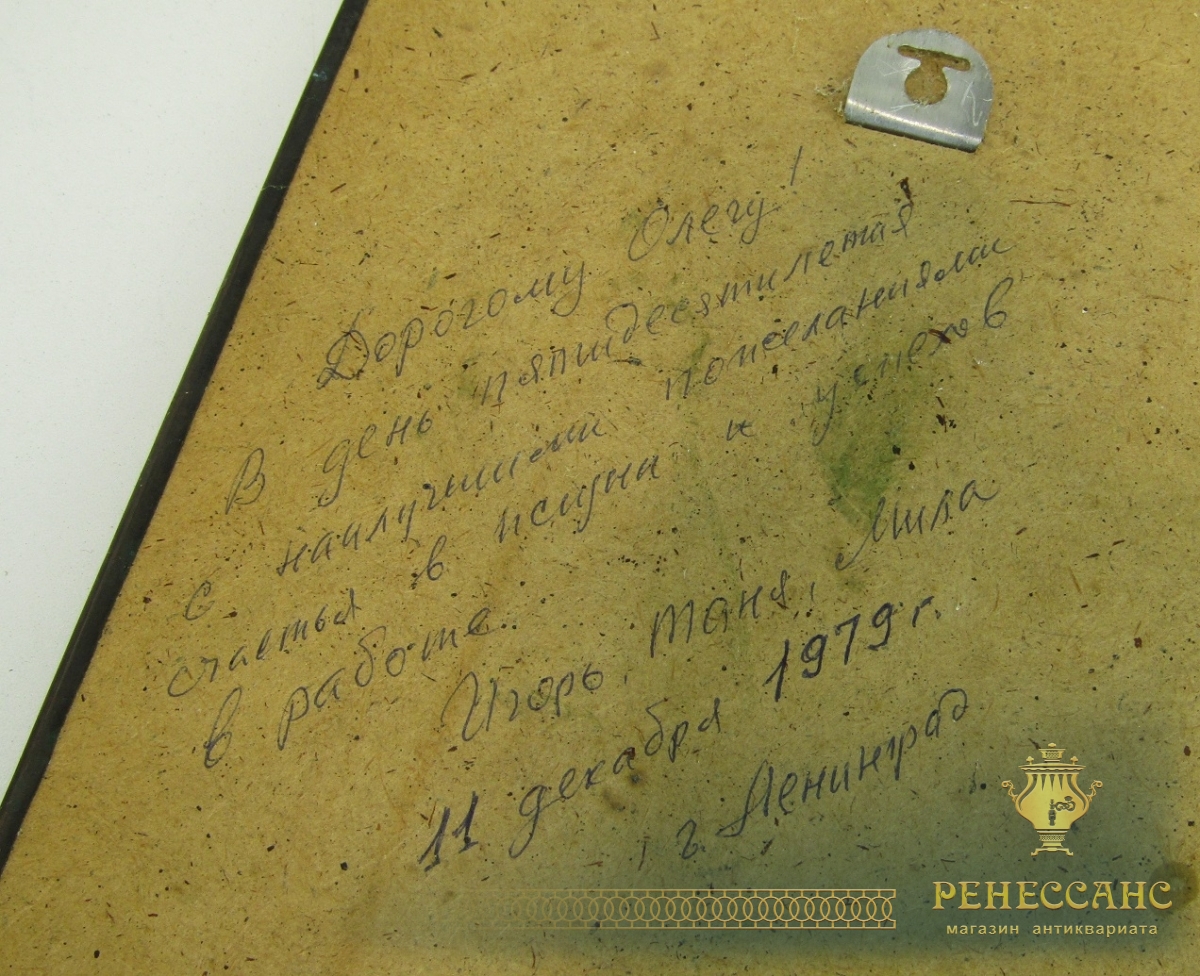 Дорогому Олегу!
В день пятидесятилетия
с наилучшими пожеланиями
счастья в жизни и успехов
в работе.
Игорь, Таня, Мила
11 декабря 1979 г.
г. Ленинград
РЕНЕССАНС
магазин антиквариата